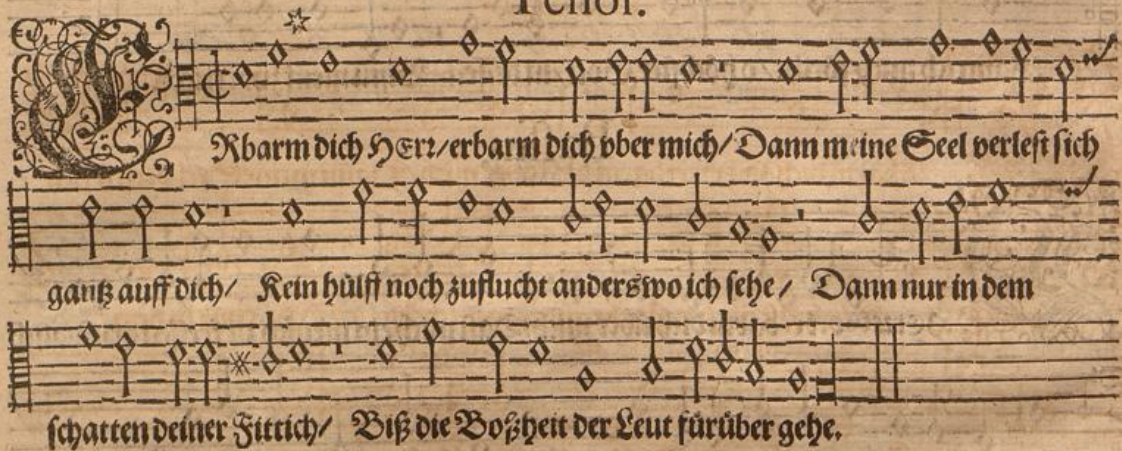 Tenor.
ERbarm dich HErr/erbarm dich vber mich/Dann meine Seel verlest sich
gantz auff dich/ Kein hülff noch zuflucht anderswo ich sehe/ Dann nur in dem
schatten deiner Fittich/ Biß die Boßheit der Leut fürüber gehe.